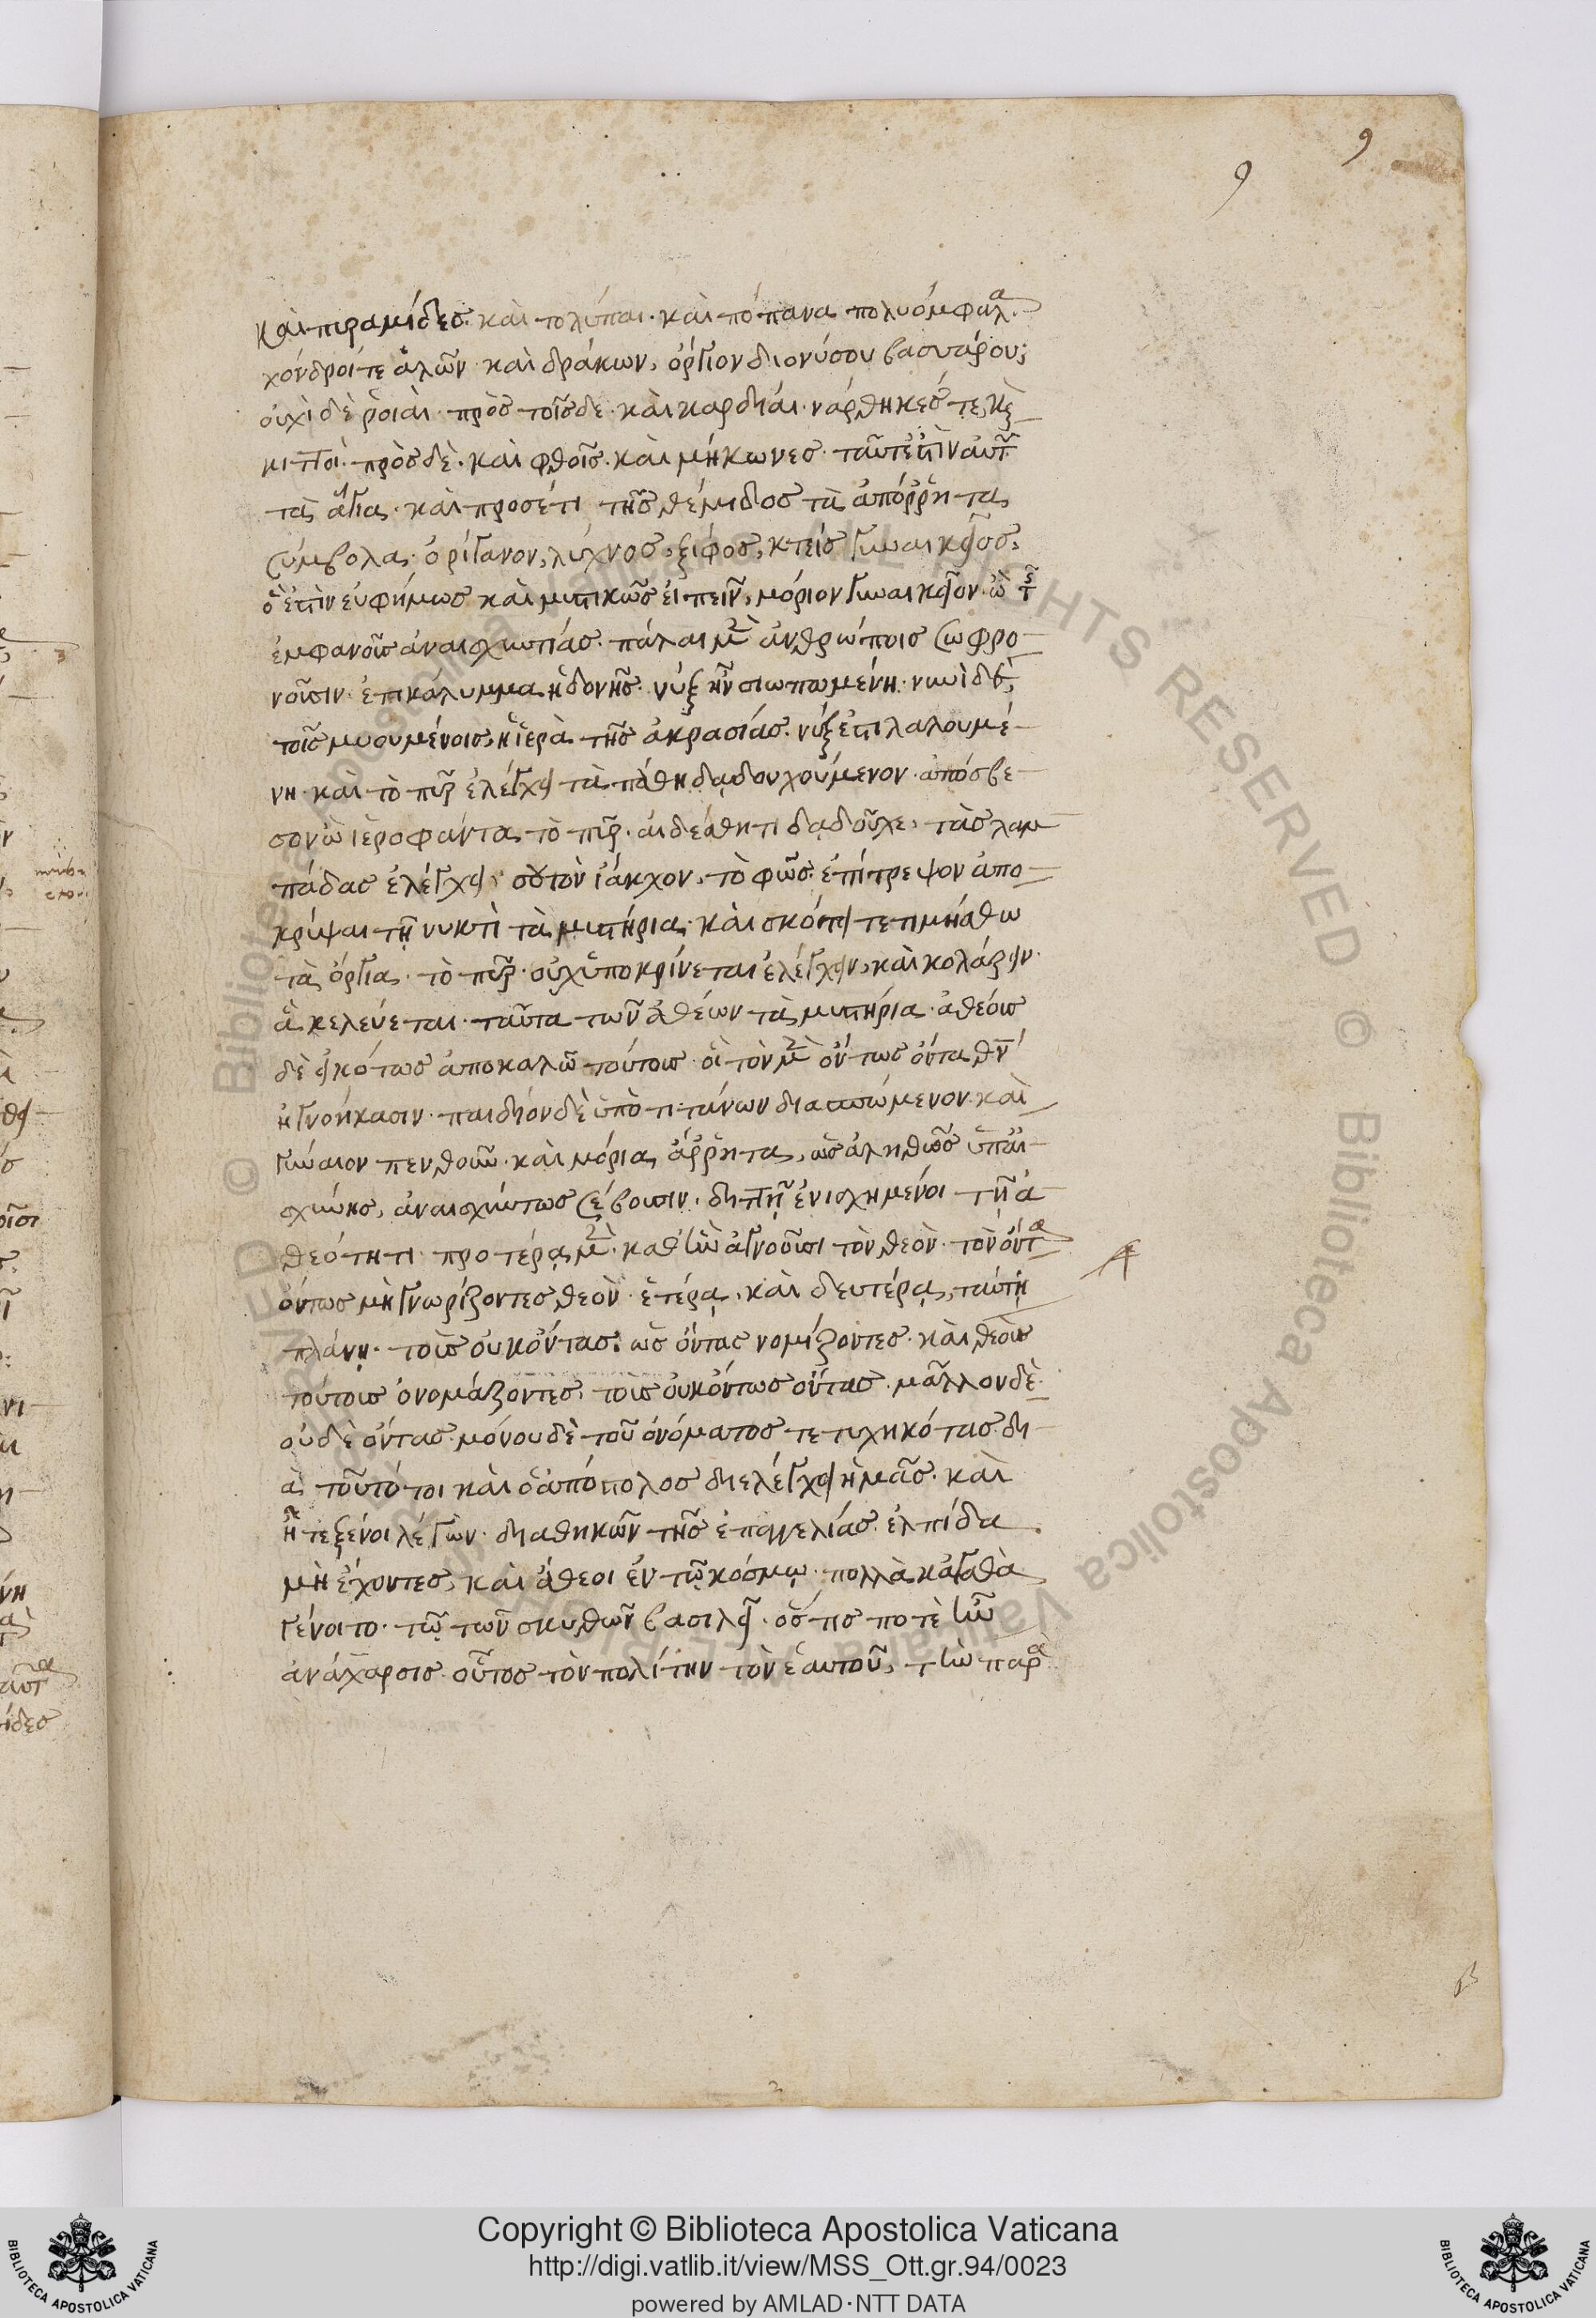 9
9
καὶ πυραμίδεσ· καὶ τολύπαι· καὶ πόπανα πολυόμφαλα
χόνδροί τε ἁλῶν· καὶ δράκων, ὄργιον διονύσου βασσάρου;
οὐχὶ δὲ ῥοιαὶ· πρὸσ τοῖσδε· καὶ καρδίαι· νάρθηκέσ τε, καὶ
κιττοί· πρὸσ δὲ· καὶ φθοῖσ· καὶ μήκωνεσ· ταῦτ' ἐστὶν αὐτῶν
τὰ ἅγια· καὶ προσέτι τῆσ θέμιδοσ τὰ ἀπόρρητα
σύμβολα· ὀρίγανον, λύχνοσ, ξίφοσ, κτεὶσ γυναικεῖοσ,
ὅ ἐστιν εὐφήμωσ καὶ μυστικῶσ εἰπεῖν, μόριον γυναικεῖον· ὢ τῆσ
ἐμφανοῦσ ἀναισχυντίασ· πάλαι μὲν ἀνθρώποισ σωφρο
νοῦσιν· ἐπικάλυμμα ἡδονῆσ· νὺξ ἦν σιωπωμένη· νυνὶ δὲ,
τοῖσ μυουμένοισ, ἡ ἱερὰ τῆσ ἀκρασίασ· νύξ ἐστι λαλουμέ
νη· καὶ τὸ πῦρ ἐλέγχει τὰ πάθη δᾳδουχούμενον· ἀπόσβε
σον ὦ ἱεροφάντα, τὸ πῦρ· αἰδέσθητι δᾳδοῦχε, τὰσ λαμ
πάδασ ἐλέγχει σου τὸν ἴακχον, τὸ φῶσ· ἐπίτρεψον ἀπο
κρύψαι τῇ νυκτὶ τὰ μυστήρια· καὶ σκότει τετιμήσθω
τὰ ὄργια· τὸ πῦρ· οὐχ ὑποκρίνεται ἐλέγχειν, καὶ κολάζειν·
ἃ κελεύεται· ταῦτα τῶν ἀθέων τὰ μυστήρια· ἀθέουσ
δὲ εἰκότωσ ἀποκαλῶ τούτουσ· οἳ τὸν μὲν ὄντωσ ὄντα θν
ἠγνοήκασιν· παιδίον δὲ ὑπὸ τιτάνων διασπώμενον· καὶ
γύναιον πενθοῦν· καὶ μόρια ἄρρητα, ὡσ ἀληθῶσ ὑπαι
σχύνησ, ἀναισχύντωσ σέβουσιν· διττῇ ἐνισχημένοι τῇ ἀ
θεότητι· προτέρᾳ μὲν· καθ' ἣν ἀγνοοῦσι τὸν θεὸν· τὸν ὄντα
ὄντωσ μὴ γνωρίζοντεσ θεὸν· ἑτέρᾳ, καὶ δευτέρᾳ, ταύτῃ
πλάνῃ· τοὺσ οὐκ ὄντασ· ὡσ ὄντασ νομίζοντεσ· καὶ θεοὺσ
τούτουσ ὀνομάζοντεσ, τοὺσ οὐκ ὄντωσ ὄντασ· μᾶλλον δὲ
οὐδὲ ὄντασ· μόνου δὲ τοῦ ὀνόματοσ τετυχηκότασ· δι
ὰ τοῦτό τοι καὶ ὁ ἀπόστολοσ διελέγχει ἡμᾶσ· καὶ
ἦτε ξένοι λέγων· διαθηκῶν τῆσ ἐπαγγελίασ· ἐλπίδα
μὴ ἔχοντεσ, καὶ ἄθεοι ἐν τῷ κόσμῳ· πολλὰ κἀγαθὰ
γένοιτο· τῷ τῶν σκυθῶν βασιλεῖ· ὅστισ ποτὲ ἦν
ἀνάχαρσισ· οὗτοσ τὸν πολίτην τὸν ἑαυτοῦ, τὴν παρὰ
Copyright © Biblioteca Apostolica Vaticana
http://digi.vatlib.it/view/MSS_Ott.gr.94/0023
powered by AMLAD·NTT DATA